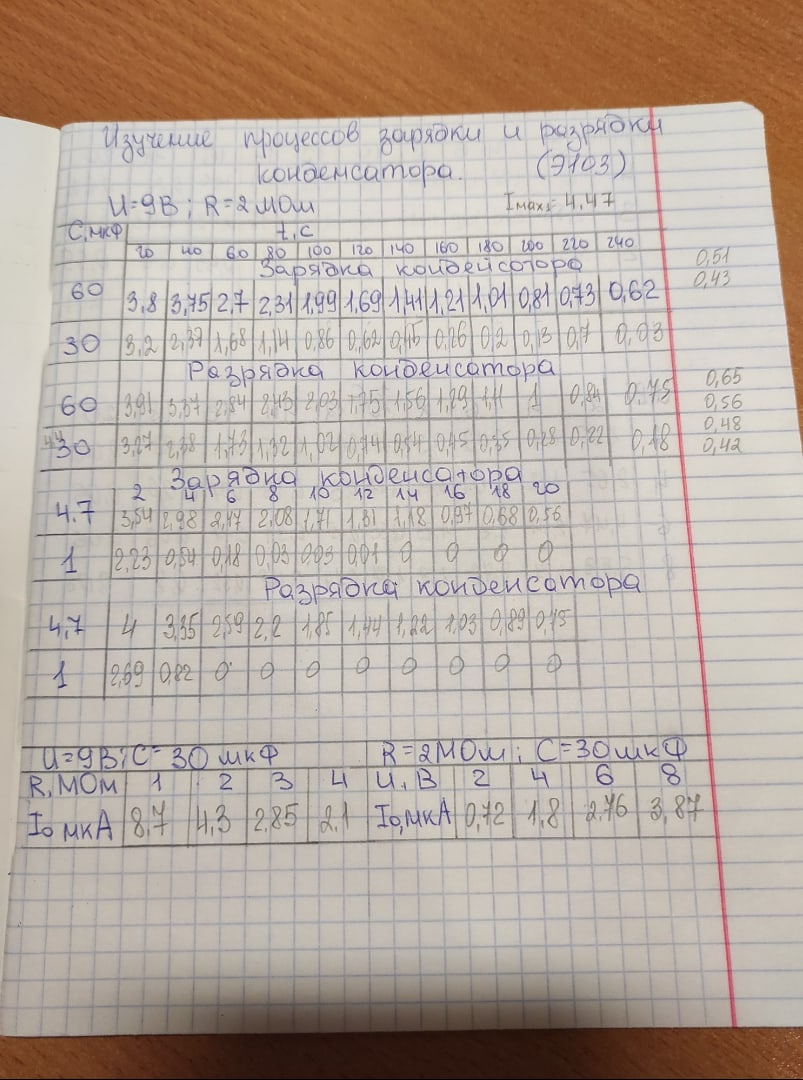 Изучение процессов зарядки и разрядки
конденсатора. (Э103)
U=9В; R=2 МОм Imax= 4,47
C,мкФ t,c
20 40 60 80 100 120 140 160 180 200 220 240
Зарядка конденсатора
0,51
0,43
60 3,8 3,75 2,7 2,31 1,99 1,69 1,41 1,21 1,01 0,81 0,73 0,62
30 3,2 2,37 1,68 1,14 0,86 0,62 0,45 0,26 0,2 0,13 0,7 0,03
Разрядка конденсатора
60 3,91 3,37 2,84 2,43 2,03 1,75 1,56 1,29 1,11 1 0,84 0,75
0,65
0,56
0,48
0,42
30 3,27 2,38 1,73 1,32 1,02 0,74 0,54 0,45 0,35 0,28 0,22 0,18
Зарядка конденсатора
2 4 6 8 10 12 14 16 18 20
4.7 3,54 2,98 2,47 2,08 1,71 1,31 1,18 0,97 0,68 0,56
1 2,23 0,54 0,18 0,03 0,03 0,01 0 0 0 0
Разрядка конденсатора
4,7 4 3,35 2,59 2,2 1,85 1,44 1,22 1,03 0,89 0,75
1 2,69 0,82 0 0 0 0 0 0 0 0
U=9В; C=30 мкФ R=2МОм; C=30мкФ
R,МОм 1 2 3 4 U,В 2 4 6 8
I₀ мкА 8,7 4,3 2,85 2,1 I₀,мкА 0,72 1,8 2,76 3,87